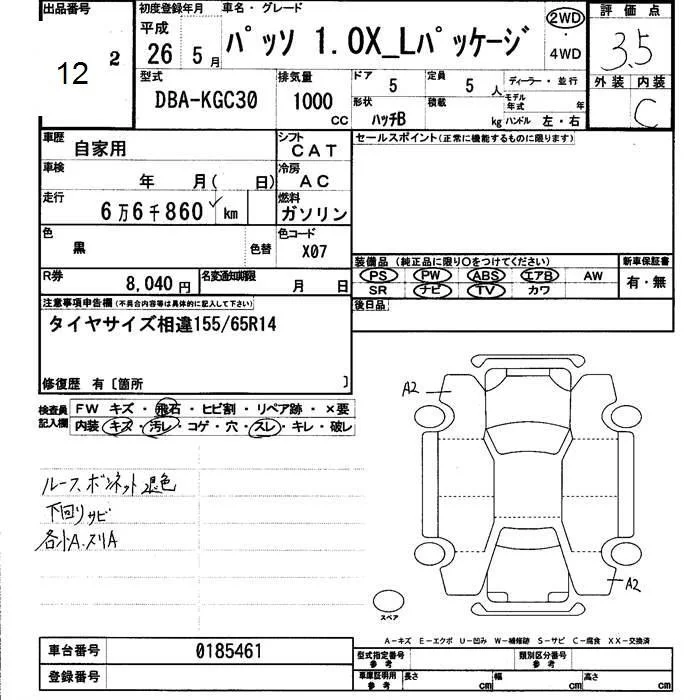 出品番号
12
2
初度登録年月 車名・グレード
平成
26 5月
パッソ 1.0X_Lパッケージ
2WD
・
4WD
評価点
3.5
外装 内装
C
型式
DBA-KGC30
排気量
1000
CC
ドア 5 定員 5 人
形状 ハッチB 積載 kg
ディーラー・並行
モデル年式 年
ハンドル 左・右
車歴 自家用
シフト CAT
車検 年 月( 日)
冷房 AC
走行 6万6千860 km
燃料 ガソリン
色 黒 色替
色コード X07
R券 8,040円
名変通知期限 月 日
セールスポイント(正常に機能するものに限ります)
装備品(純正品に限り○をつけてください)
PS PW ABS エアB AW
SR ナビ TV カワ
新車保証書
有・無
後日品
注意事項申告欄(不具合内容等は具体的に記入して下さい)
タイヤサイズ相違155/65R14
修復歴 有〔箇所 〕
検査員記入欄
FW キズ・飛石・ヒビ割・リペア跡・×要
内装 キズ・汚レ・コゲ・穴・スレ・キレ・破レ
ルーフ、ボンネット退色
下回りサビ
各小A.ヌリA
A2
A2
スペア
A-キズ E-エクボ U-凹み W-補修跡 S-サビ C-腐食 XX-交換済
車台番号 0185461
登録番号
型式指定番号 参考
類別区分番号 参考
車庫証明用 参考
長さ cm 幅 cm 高さ cm